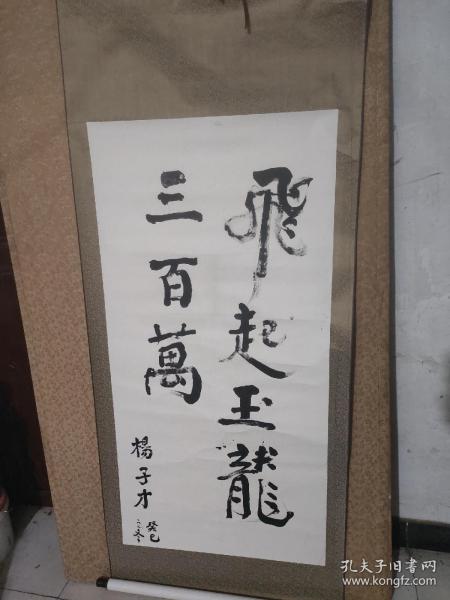 飛起玉龍
三百萬
楊子才
癸巳
之冬
孔夫子旧书网
www.kongfz.com